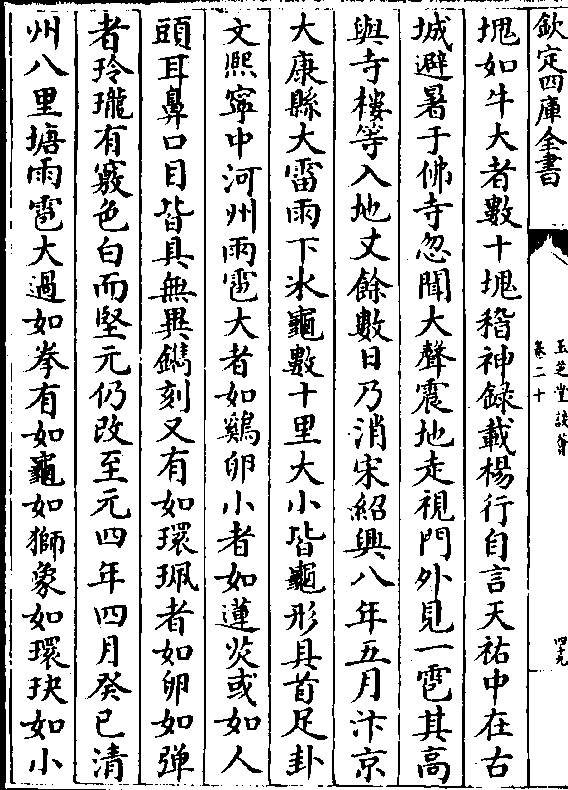 欽定四庫全書
玉芝堂談薈
卷二十
四九
塊如牛大者數十塊稽神録載楊行自言天祐中在右
城避暑于佛寺忽聞大聲震地走視門外見一雹其高
與寺樓等入地丈餘數日乃消宋紹興八年五月汴京
大康縣大雷雨下氷龜數十里大小皆龜形具首足卦
文熙寜中河州雨雹大者如鷄卵小者如蓮芡或如人
頭耳鼻口目皆具無異鐫刻又有如環珮者如卵如弹
者玲瓏有竅色白而堅元仍改至元四年四月癸巳清
州八里塘雨雹大過如拳有如龜如獅象如環玦如小